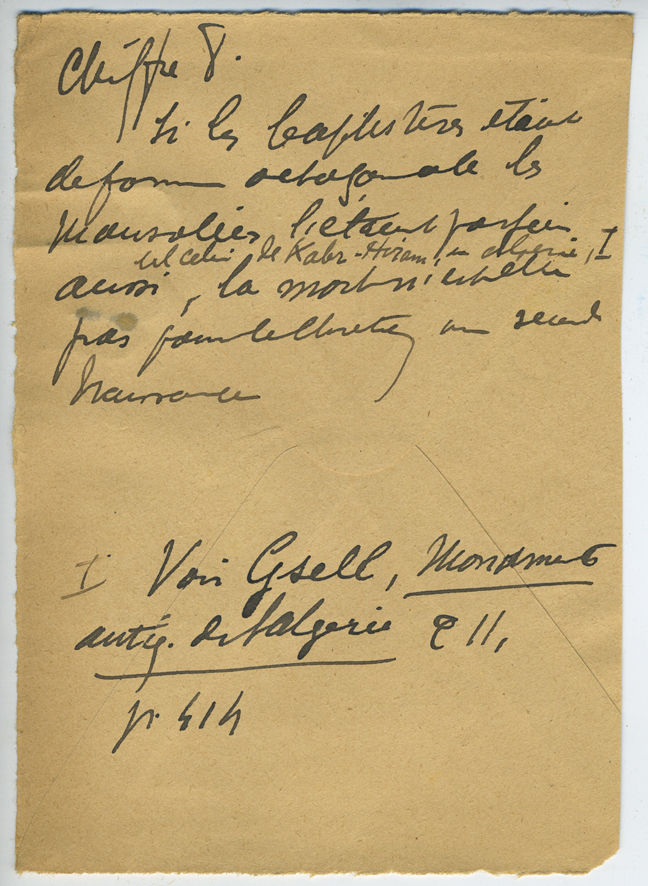 Chiffre 8.
Si les baptistères étaient
de forme octogonale les
Mausolées l'étaient parfois
tel celui de Kabr-Hiram, en algérie, I
aussi, la mort n'est elle
pas pour le chrétien une seconde
Naissance
I Voir Gsell, Monuments
antiq. de l'algerie T II,
p. 414